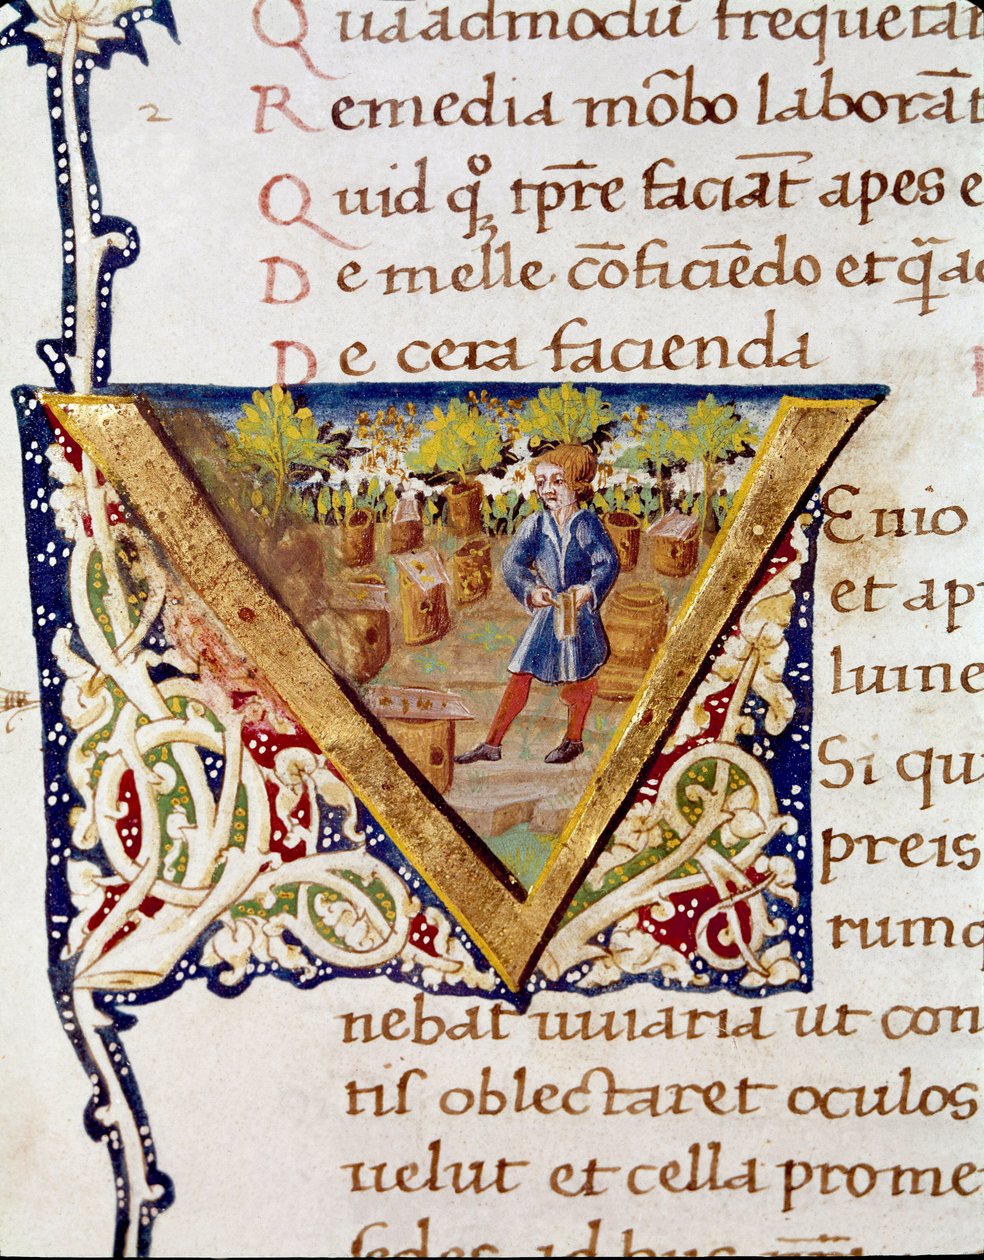 Quēadmodū frequetan
Remedia mōbo laborāt
Quid qͦꝫ tp̄re faciāt apes e
De melle cōficiēdo et q̄ ad
De cera facienda
VEnio
et ap
luine
Si qu
preis
rumq
nebat uiuaria ut con
tiſ oblectaret oculos
uelut et cella prome
ſedes id